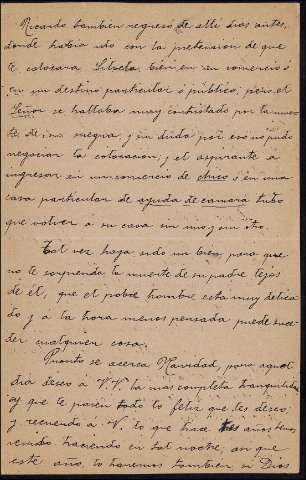 Ricardo tambien regresó de allí dias antes,
donde habia ido con la pretension de que
le colocara bien en un comercio ó
en un destino particular ó público; pero el
Señor se hallaba muy contristado por la muer
te de su suegra, y sin duda por eso no pudo
negociar la colocacion, y el aspirante a
ingresar en un comercio de chico ó en una
casa particular de ayuda de camara tubo
que volver a su casa sin uno y sin otro.
Tal vez haya sido un bien, para que
no le sorprenda la muerte de su padre lejos
de él, que el pobre hombre esta muy delica
do y a la hora menos pensada puede suce
der cualquier cosa.
Pronto se acerca Navidad, para aquel
dia deseo á V.V. la mas completa tranquilidad
y que le pasen todo lo feliz que les deseo;
y recuerdo á V. lo que hace tres años venimos
haciendo en tal noche, asi que
este año, lo haremos tambien si Dios